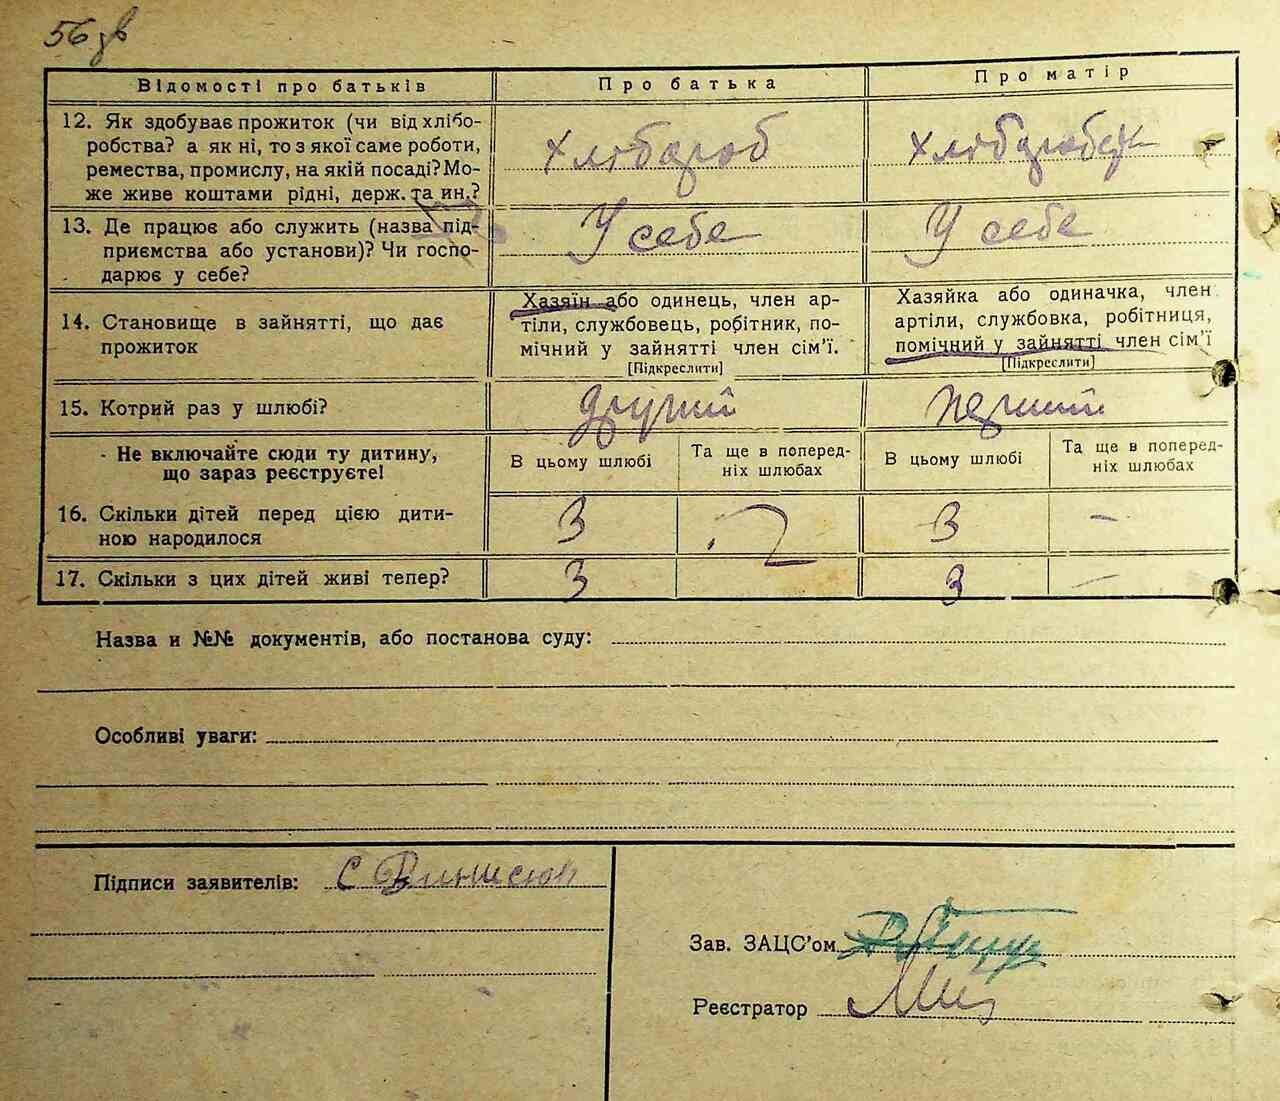 56 зв
Відомості про батьків
Про батька
Про матір
12. Як здобуває прожиток (чи від хлібо-
робства? а як ні, то з якої саме роботи,
ремества, промислу, на якій посаді? Мо-
же живе коштами рідні, держ. та ин.?
хлібороб
хліборобка
13. Де працює або служить (назва під-
приємства або установи)? Чи госпо-
дарює у себе?
У себе
У себе
14. Становище в зайнятті, що дає
прожиток
Хазяїн або одинець, член ар-
тіли, службовець, робітник, по-
мічний у зайнятті член сім'ї.
[Підкреслити]
Хазяйка або одиначка, член
артіли, службовка, робітниця,
помічний у зайнятті член сім'ї
[Підкреслити]
15. Котрий раз у шлюбі?
другий
перший
- Не включайте сюди ту дитину,
що зараз реєструєте!
В цьому шлюбі
Та ще в поперед-
ніх шлюбах
В цьому шлюбі
Та ще в поперед-
ніх шлюбах
16. Скільки дітей перед цією дити-
ною народилося
3
3
–
17. Скільки з цих дітей живі тепер?
3
3
–
Назва и №№ документів, або постанова суду:
Особливі уваги:
Підписи заявителів: С
Зав. ЗАЦС'ом
Реєстратор